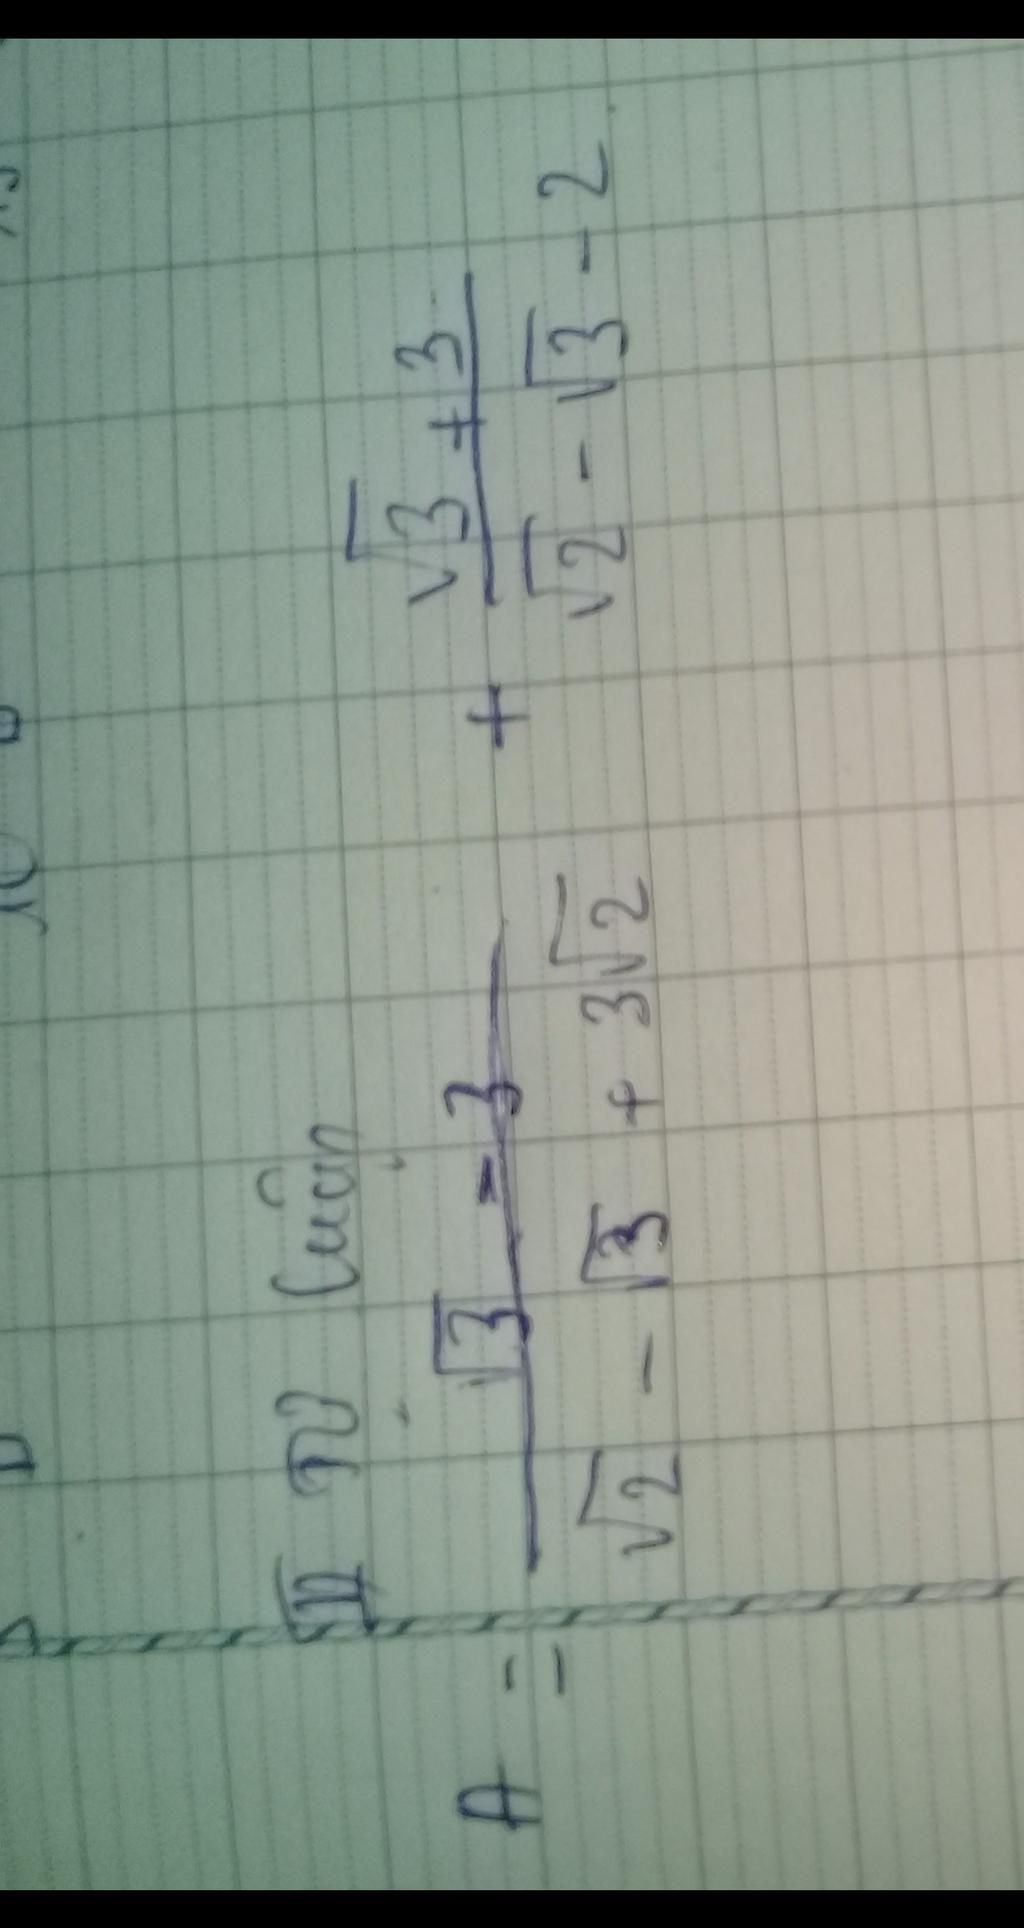 III Tự luận
A = \frac{\sqrt{3} - 3}{\sqrt{2} - \sqrt{3} + 3\sqrt{2}} + \frac{\sqrt{3} + 3}{\sqrt{2} - \sqrt{3} - 2}